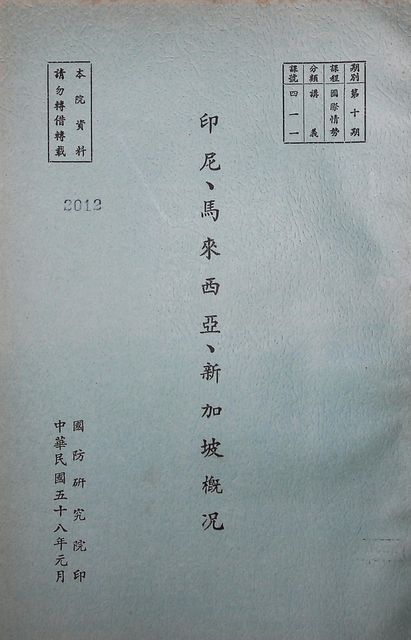 期別 第十期
課程 國際情勢
分類 講義
課號 四一一
印尼、馬來西亞、新加坡概况
本院資料
請勿轉借轉載
2012
國防研究院印
中華民國五十八年元月